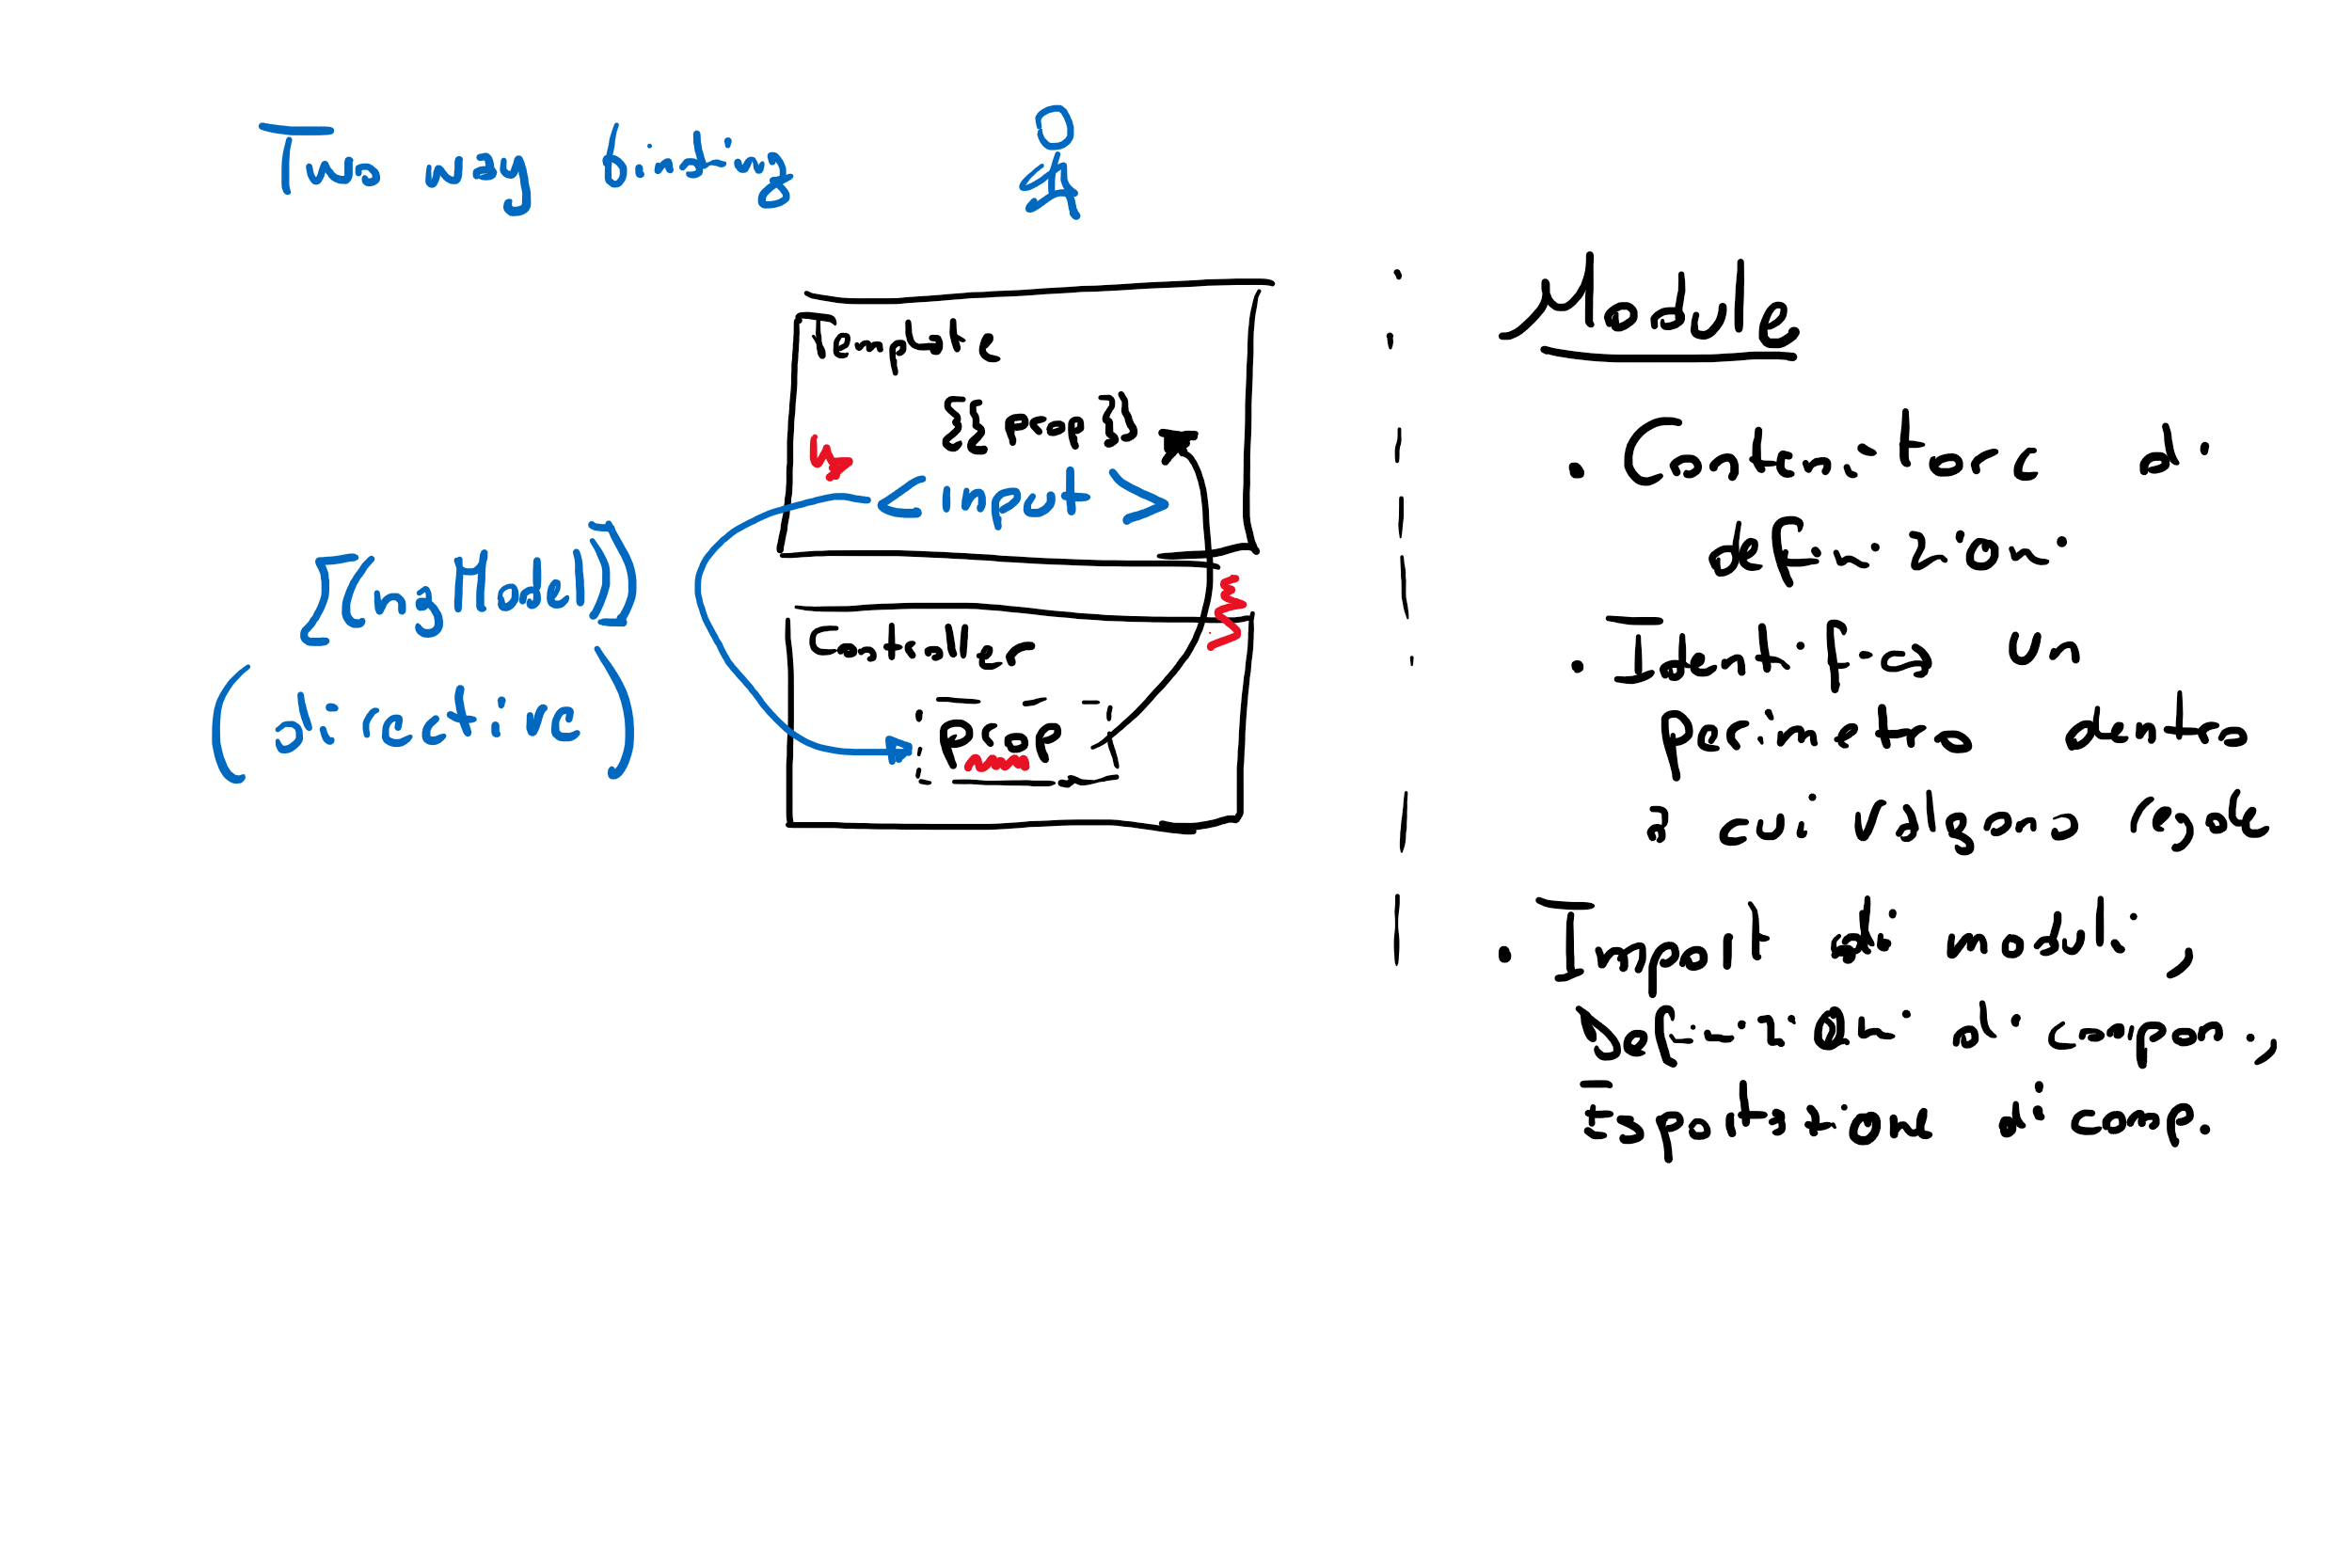 Two way binding
Template
{{prop}}
<input>
[(ngModel)]
(directive)
Controller
Prop
Module
. Contenitore di
definizioni
. Identifica un
perimetro dentro
a cui valgono regole
. Import di moduli,
Definizioni di compon.,
Esportazione di comp.